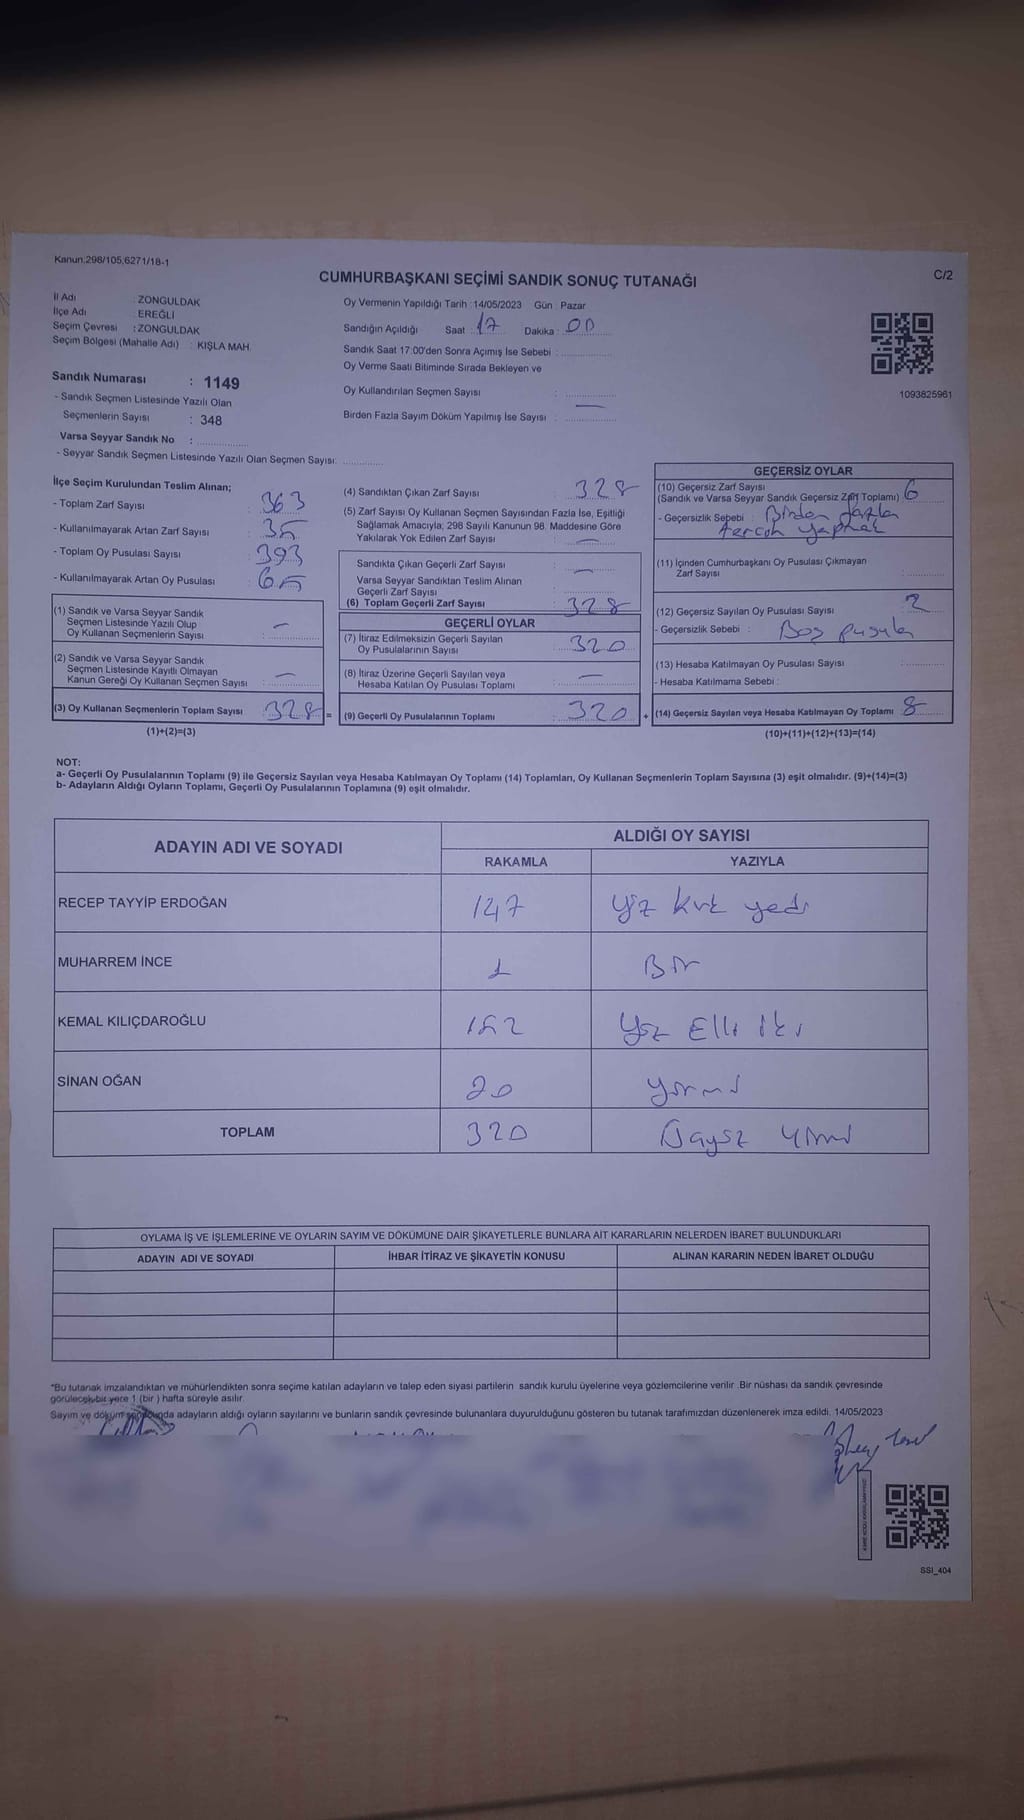 Kanun.298/105,6271/18-1
C/2
CUMHURBAŞKANI SEÇİMİ SANDIK SONUÇ TUTANAĞI
İl Adı : ZONGULDAK
İlçe Adı : EREĞLİ
Seçim Çevresi : ZONGULDAK
Seçim Bölgesi (Mahalle Adı) : KIŞLA MAH.
Sandık Numarası : 1149
- Sandık Seçmen Listesinde Yazılı Olan
Seçmenlerin Sayısı : 348
Varsa Seyyar Sandık No :
- Seyyar Sandık Seçmen Listesinde Yazılı Olan Seçmen Sayısı:
Oy Vermenin Yapıldığı Tarih :14/05/2023 Gün : Pazar
Sandığın Açıldığı Saat : 17 Dakika : 00
Sandık Saat 17:00'den Sonra Açımış İse Sebebi :
Oy Verme Saati Bitiminde Sırada Bekleyen ve
Oy Kullandırılan Seçmen Sayısı :
Birden Fazla Sayım Döküm Yapılmış İse Sayısı : —
1093825961
İlçe Seçim Kurulundan Teslim Alınan;
- Toplam Zarf Sayısı : 363
- Kullanılmayarak Artan Zarf Sayısı : 35
- Toplam Oy Pusulası Sayısı : 393
- Kullanılmayarak Artan Oy Pusulası : 65
(1) Sandık ve Varsa Seyyar Sandık
Seçmen Listesinde Yazılı Olup
Oy Kullanan Seçmenlerin Sayısı : —
(2) Sandık ve Varsa Seyyar Sandık
Seçmen Listesinde Kayıtlı Olmayan
Kanun Gereği Oy Kullanan Seçmen Sayısı : —
(3) Oy Kullanan Seçmenlerin Toplam Sayısı 328 =
(1)+(2)=(3)
(4) Sandıktan Çıkan Zarf Sayısı : 328
(5) Zarf Sayısı Oy Kullanan Seçmen Sayısından Fazla İse, Eşitliği
Sağlamak Amacıyla; 298 Sayılı Kanunun 98. Maddesine Göre
Yakılarak Yok Edilen Zarf Sayısı : —
Sandıkta Çıkan Geçerli Zarf Sayısı : —
Varsa Seyyar Sandıktan Teslim Alınan
Geçerli Zarf Sayısı :
(6) Toplam Geçerli Zarf Sayısı : 328
GEÇERLİ OYLAR
(7) İtiraz Edilmeksizin Geçerli Sayılan
Oy Pusulalarının Sayısı : 320
(8) İtiraz Üzerine Geçerli Sayılan veya
Hesaba Katılan Oy Pusulası Toplamı : —
(9) Geçerli Oy Pusulalarının Toplamı : 320 +
GEÇERSİZ OYLAR
(10) Geçersiz Zarf Sayısı
(Sandık ve Varsa Seyyar Sandık Geçersiz Zarf Toplamı) 6
- Geçersizlik Sebebi : Birden fazla
tercih yapmak
(11) İçinden Cumhurbaşkanı Oy Pusulası Çıkmayan
Zarf Sayısı :
(12) Geçersiz Sayılan Oy Pusulası Sayısı : 2
- Geçersizlik Sebebi : Boş pusula
(13) Hesaba Katılmayan Oy Pusulası Sayısı :
- Hesaba Katılmama Sebebi :
(14) Geçersiz Sayılan veya Hesaba Katılmayan Oy Toplamı : 8
(10)+(11)+(12)+(13)=(14)
NOT:
a- Geçerli Oy Pusulalarının Toplamı (9) ile Geçersiz Sayılan veya Hesaba Katılmayan Oy Toplamı (14) Toplamları, Oy Kullanan Seçmenlerin Toplam Sayısına (3) eşit olmalıdır. (9)+(14)=(3)
b- Adayların Aldığı Oyların Toplamı, Geçerli Oy Pusulalarının Toplamına (9) eşit olmalıdır.
ADAYIN ADI VE SOYADI
ALDIĞI OY SAYISI
RAKAMLA YAZIYLA
RECEP TAYYİP ERDOĞAN 147 Yüz kırk yedi
MUHARREM İNCE 1 Bir
KEMAL KILIÇDAROĞLU 152 Yüz Elli iki
SİNAN OĞAN 20 Yirmi
TOPLAM 320 Üçyüz yirmi
OYLAMA İŞ VE İŞLEMLERİNE VE OYLARIN SAYIM VE DÖKÜMÜNE DAİR ŞİKAYETLERLE BUNLARA AİT KARARLARIN NELERDEN İBARET BULUNDUKLARI
ADAYIN ADI VE SOYADI İHBAR İTİRAZ VE ŞİKAYETİN KONUSU ALINAN KARARIN NEDEN İBARET OLDUĞU
*Bu tutanak imzalandıktan ve mühürlendikten sonra seçime katılan adayların ve talep eden siyasi partilerin sandık kurulu üyelerine veya gözlemcilerine verilir .Bir nüshası da sandık çevresinde
görülecek bir yere 1 (bir ) hafta süreyle asılır.
Sayım ve döküm sonucunda adayların aldığı oyların sayılarını ve bunların sandık çevresinde bulunanlara duyurulduğunu gösteren bu tutanak tarafımızdan düzenlenerek imza edildi. 14/05/2023
SSI_404